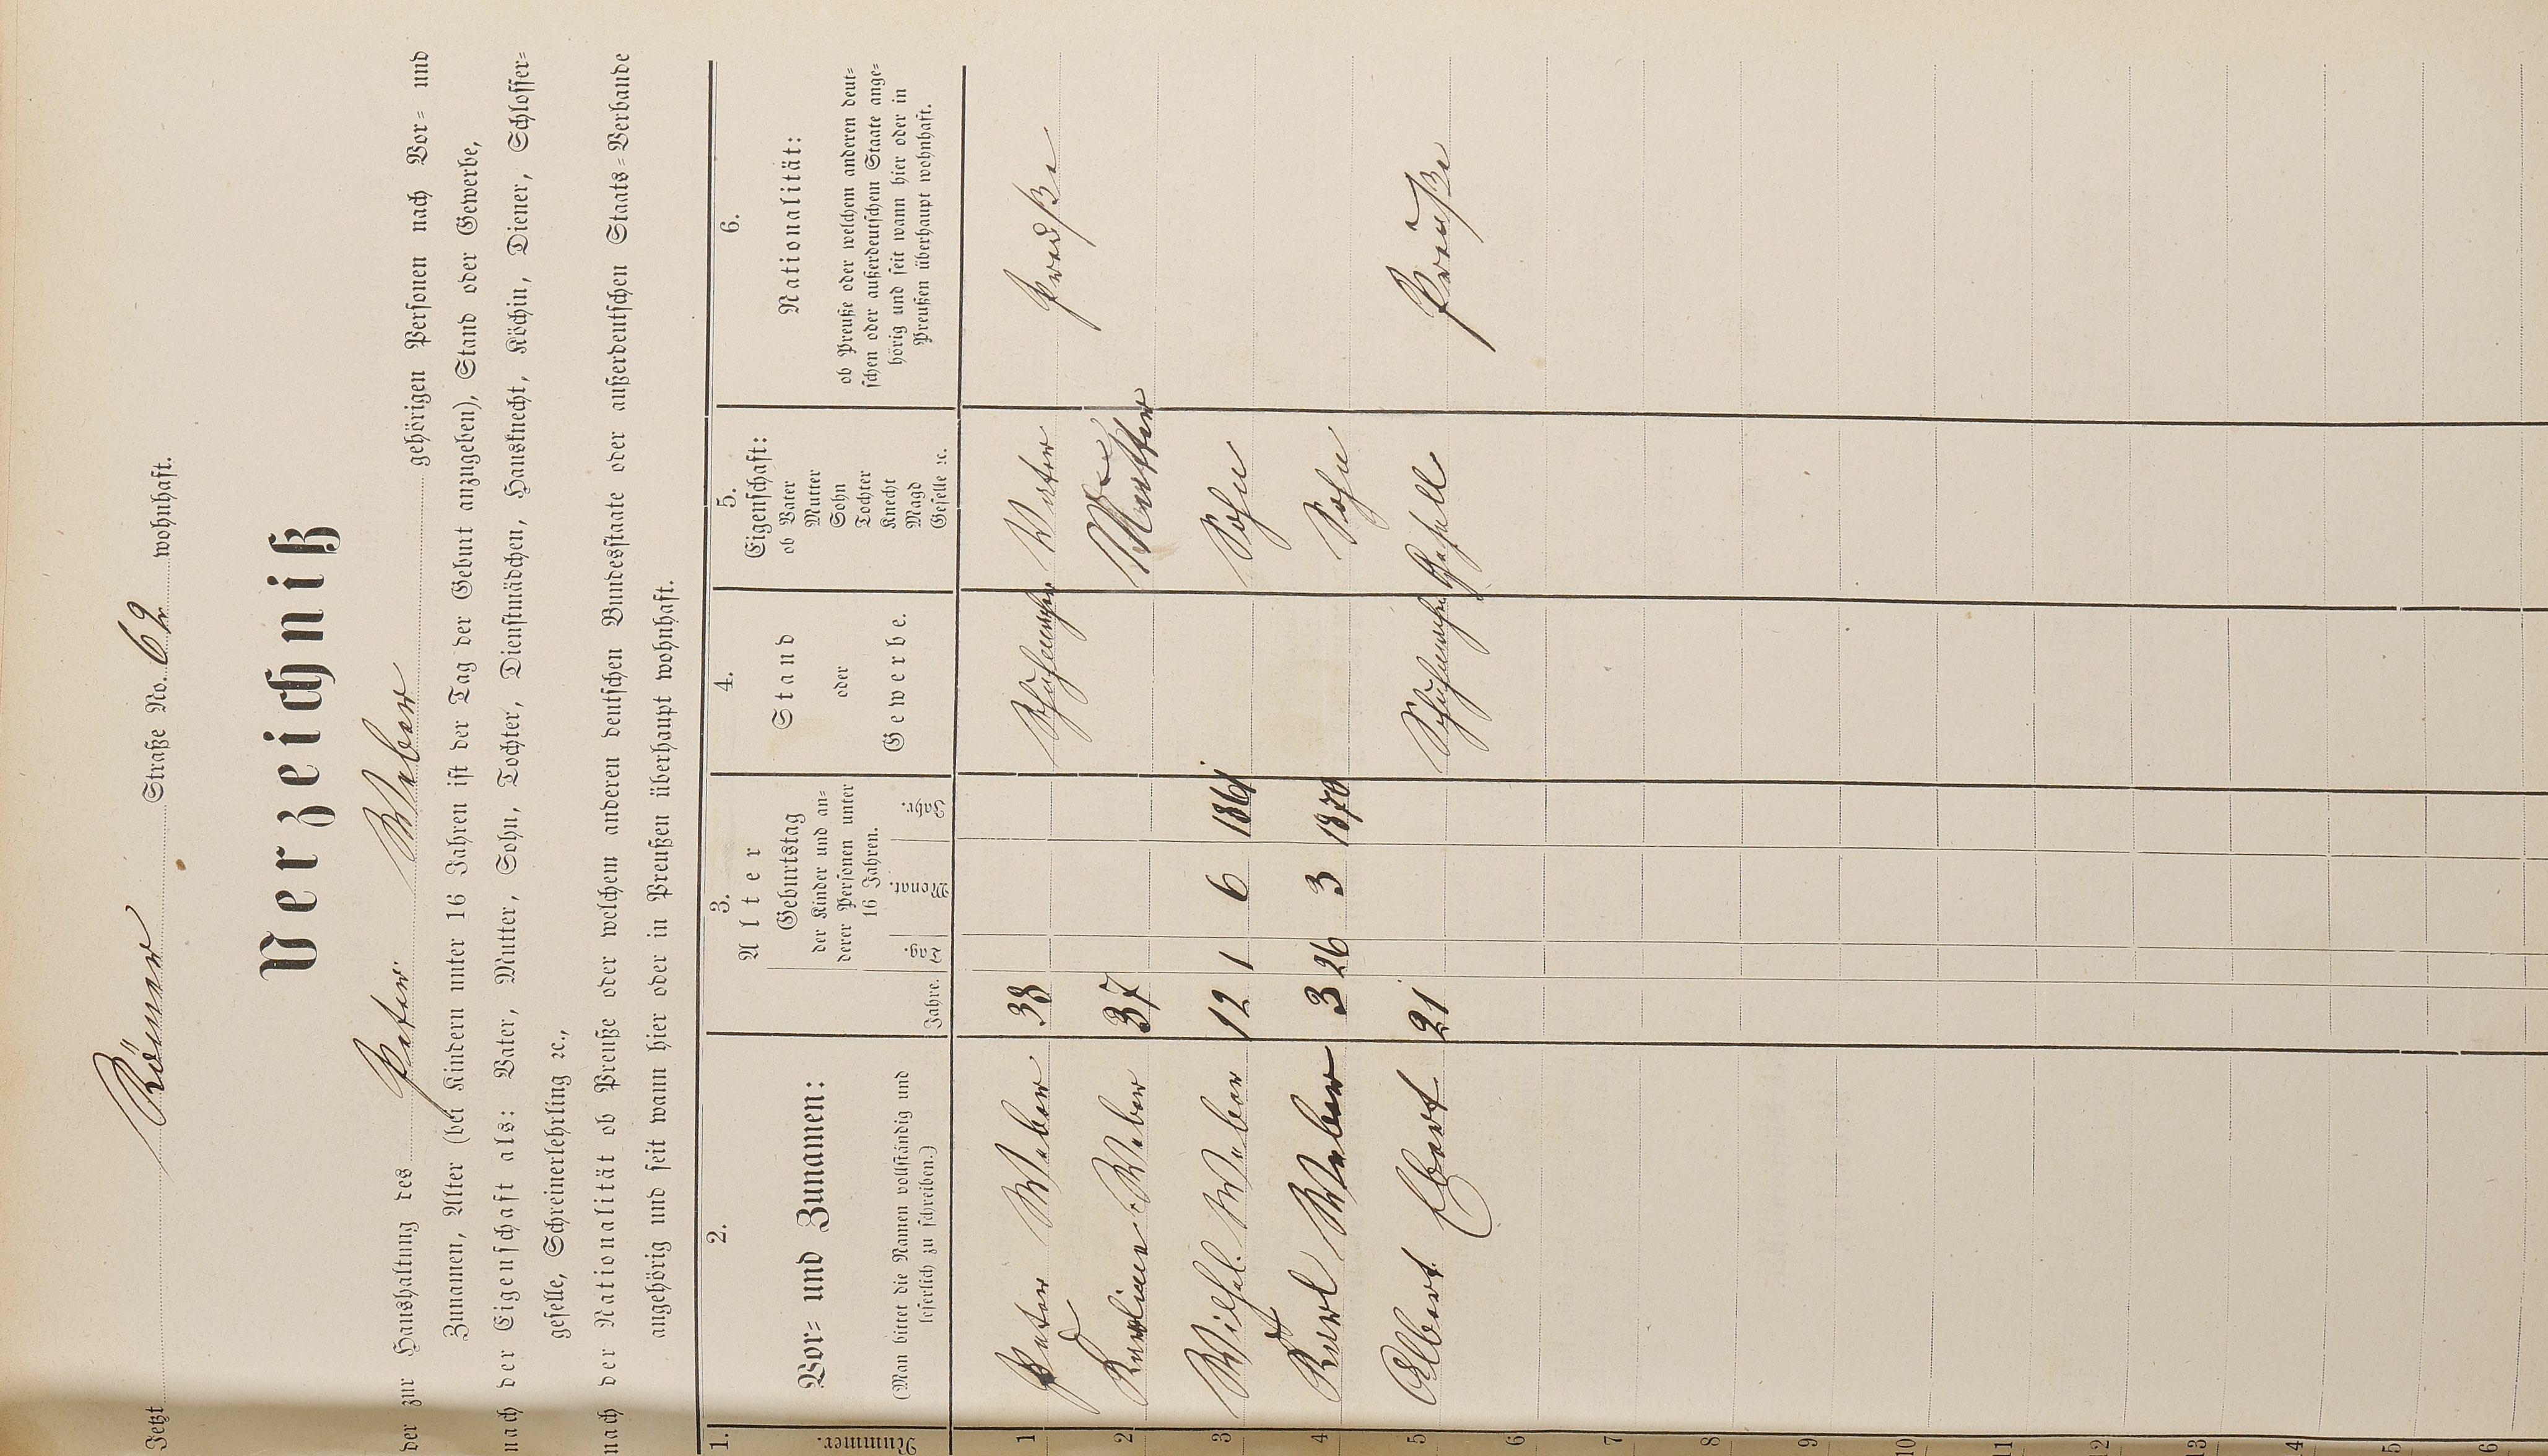 Jetzt Römer Straße No. 62 wohnhaft.
Verzeichniß
der zur Haushaltung des Peter Weber gehörigen Personen nach Vor= und
Zunamen, Alter (bei Kindern unter 16 Jahren ist der Tag der Geburt anzugeben), Stand oder Gewerbe,
nach der Eigenschaft als: Vater, Mutter, Sohn, Tochter, Dienstmädchen, Hausknecht, Köchin, Diener, Schlosser=
geselle, Schreinerlehrling ꝛc.,
nach der Nationalität ob Preuße oder welchem anderen deutschen Bundesstaate oder außerdeutschen Staats=Verbande
angehörig und seit wann hier oder in Preußen überhaupt wohnhaft.
1. 2. 3. 4. 5. 6.
Nummer.
Vor= und Zunamen:
(Man bittet die Namen vollständig und
leserlich zu schreiben.)
Alter
Jahre.
Geburtstag
der Kinder und an=
derer Personen unter
16 Jahren.
Tag. Monat. Jahr.
Stand
oder
Gewerbe.
Eigenschaft:
ob Vater
Mutter
Sohn
Tochter
Knecht
Magd
Geselle ꝛc.
Nationalität:
ob Preuße oder welchem anderen deut=
schen oder außerdeutschem Staate ange=
hörig und seit wann hier oder in
Preußen überhaupt wohnhaft.
1 Peter Weber 38 Schuhmacher Vater Preuße
2 Karline Weber 37 Mutter
3 Wilhel. Weber 12 1 6 1861
4 Karl Weber 3 26 3 1870 Sohn
5 Albert Ebert 21 Schuhmacher Gesell Preuße
6
7
8
9
10
11
12
13
4
5
6